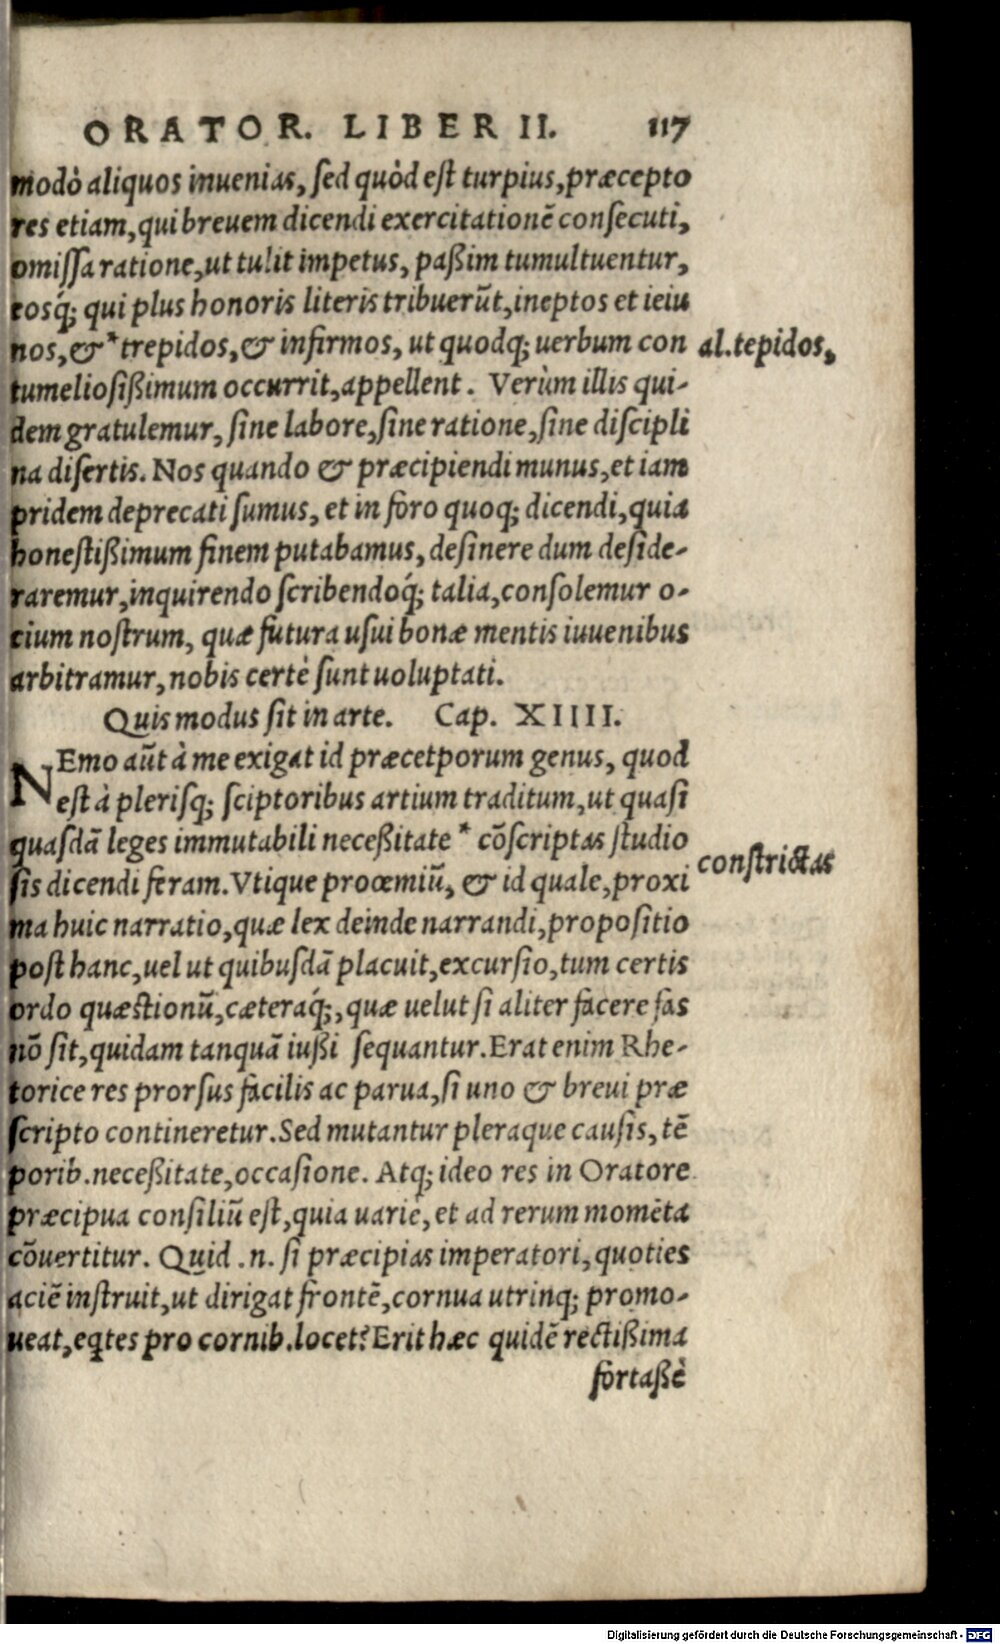 ORATOR. LIBER II. 117
modò aliquos inuenias, sed quòd est turpius, præcepto
res etiam, qui breuem dicendi exercitationẽ consecuti,
omissa ratione, ut tulit impetus, paßim tumultuentur,
eosq́; qui plus honoris literis tribuerũt, ineptos et ieiu
nos, & *trepidos, & infirmos, ut quodq; uerbum con
al. tepidos,
tumeliosißimum occurrit, appellent. Verùm illis qui-
dem gratulemur, sine labore, sine ratione, sine discipli
na disertis. Nos quando & præcipiendi munus, et iam
pridem deprecati sumus, et in foro quoq; dicendi, quia
honestißimum finem putabamus, desinere dum deside-
raremur, inquirendo scribendoq́; talia, consolemur o-
cium nostrum, quæ futura usui bonæ mentis iuuenibus
arbitramur, nobis certè sunt uoluptati.
Quis modus sit in arte. Cap. XIIII.
NEmo aũt à me exigat id præcetporum genus, quod
est à plerisq; sciptoribus artium traditum, ut quasi
quasdã leges immutabili neceßitate * cõscriptas studio
constrictas
sis dicendi feram. Vtique proœmiũ, & id quale, proxi
ma huic narratio, quæ lex deinde narrandi, propositio
post hanc, uel ut quibusdã placuit, excursio, tum certis
ordo quæstionũ, cæteraq́;, quæ uelut si aliter facere fas
nõ sit, quidam tanquã iußi sequantur. Erat enim Rhe-
torice res prorsus facilis ac parua, si uno & breui præ
scripto contineretur. Sed mutantur pleraque causis, tẽ
porib. neceßitate, occasione. Atq; ideo res in Oratore
præcipua consiliũ est, quia uariè, et ad rerum momẽta
cõuertitur. Quid .n. si præcipias imperatori, quoties
aciẽ instruit, ut dirigat frontẽ, cornua utrinq; promo-
ueat, eq̃tes pro cornib. locet? Erit hæc quidẽ rectißima
fortaßè
Digitalisierung gefördert durch die Deutsche Forschungsgemeinschaft - DFG